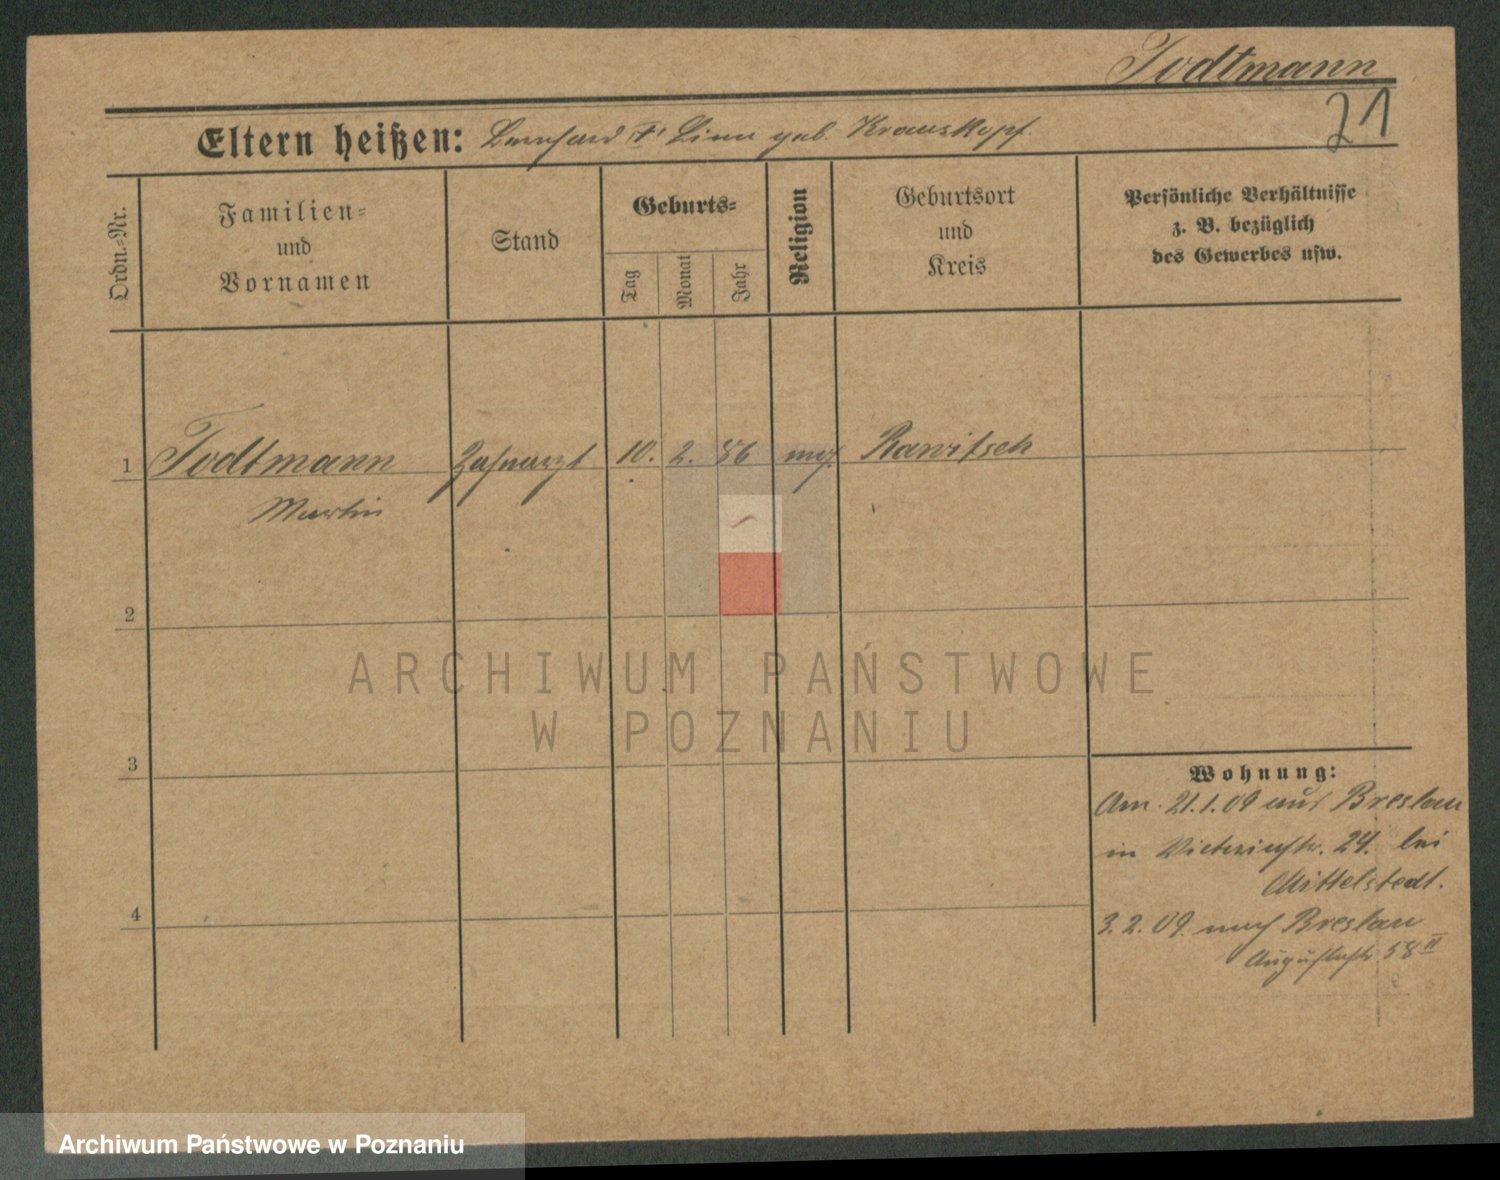 Todtmann
21
Eltern heißen: Bernhard "†" Lina geb. Krauskopf.
Ordn.-Nr.
Familien-
und
Vornamen
Stand
Geburts-
Tag
Monat
Jahr
Religion
Geburtsort
und
Kreis
Persönliche Verhältnisse
z. B. bezüglich
des Gewerbes usw.
1 Todtmann Zahnarzt 10. 2. 56 Rawitsch
Martin
2
3
4
Wohnung:
Am 21.1.09 aus Breslau
in Victoriastr. 24. bei
Mittelstedt.
3.2.09. nach Breslau
Augustastr. 58 II
ARCHIWUM PAŃSTWOWE
W POZNANIU
Archiwum Państwowe w Poznaniu